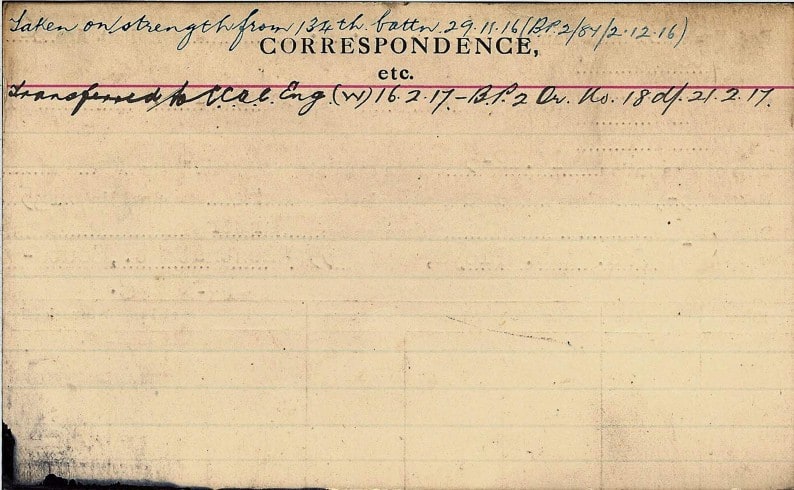 Taken on strength from 134th. battn. 29.11.16 (B.P.2/84/2.12.16)
CORRESPONDENCE,
etc.
Transferred to Eng (W) 16.2.17 - B.P. 2 Or. No. 18 d/. 21.2.17.